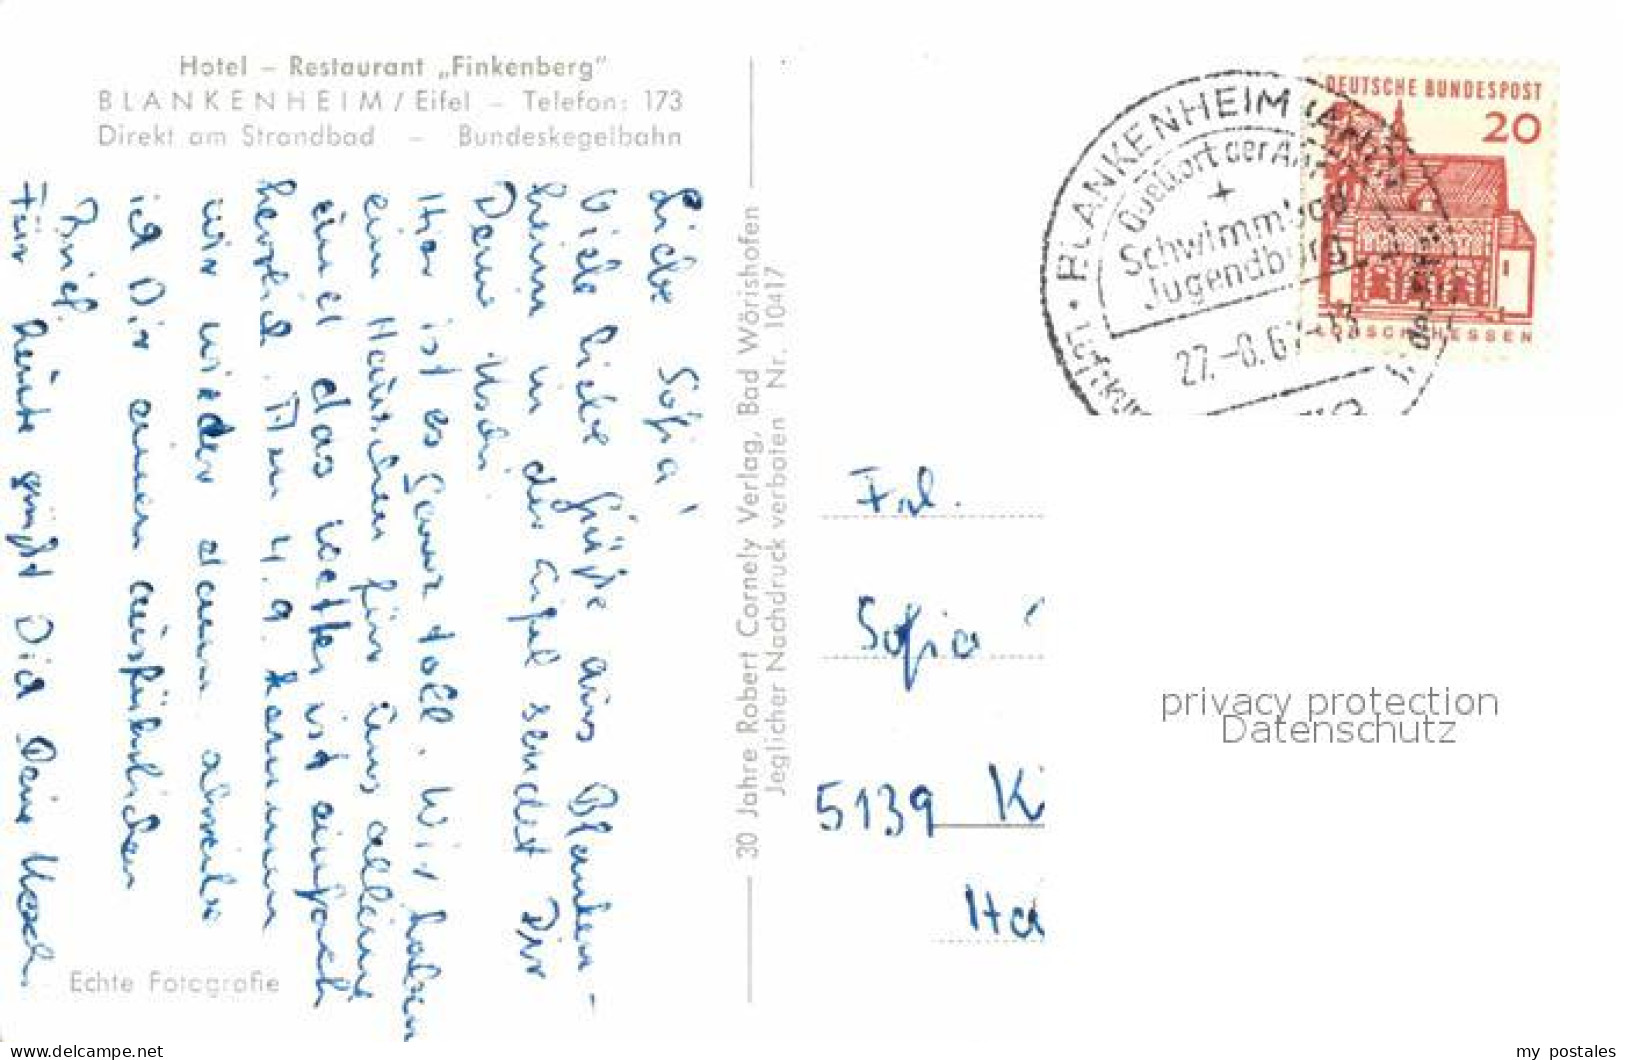 Hotel – Restaurant „Finkenberg"
BLANKENHEIM / Eifel – Telefon: 173
Direkt am Strandbad – Bundeskegelbahn
Liebe Sofia!
Viele liebe Grüße aus Blanken-
heim in der Eifel sendet Dir
Deine Uschi.
Hier ist es ganz toll. Wir haben
ein Häuschen für uns alleine
und das Wetter ist einfach
herrlich. Am 4.9. kommen
wir wieder dann schreibe
ich Dir einen ausführlichen
Brief.
Für heute grüßt Dich Deine Uschi
Echte Fotografie
30 Jahre Robert Cornely Verlag, Bad Wörishofen
Jeglicher Nachdruck verboten Nr. 10417
BLANKENHEIM (AHR)
Quellort der Ahr
Schwimmbad
Jugendburg
27.-8.67-13
LUFTKUR
DEUTSCHE BUNDESPOST
20
LORSCH/HESSEN
Frl.
Sofia
5139 Ki
Ha
privacy protection
Datenschutz
delcampe.net
my_postales